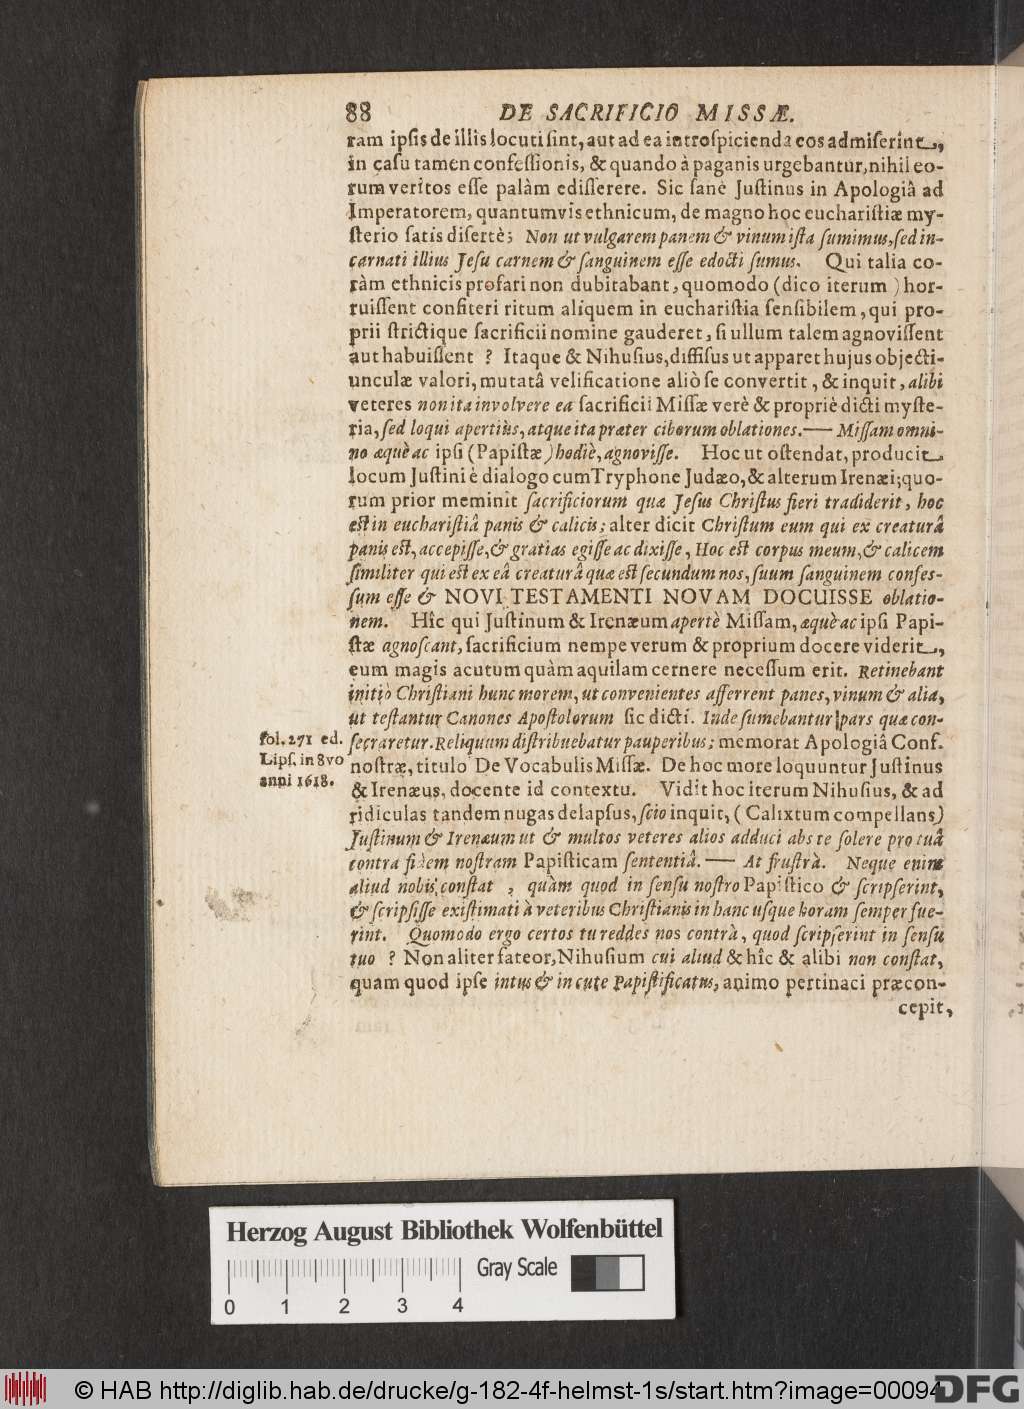 88 DE SACRIFICIO MISSÆ.
ram ipsis de illis locuti sint, aut ad ea introspicienda eos admiserint,
in casu tamen confessionis, & quando à paganis urgebantur, nihil eo-
rum veritos esse palàm edisserere. Sic sanè Justinus in Apologiâ ad
Imperatorem, quantumvis ethnicum, de magno hoc eucharistiæ my-
sterio satis disertè; Non ut vulgarem panem & vinum ista sumimus, sed in-
carnati illius Jesu carnem & sanguinem esse edocti sumus. Qui talia co-
ràm ethnicis profari non dubitabant, quomodo (dico iterum) hor-
ruissent confiteri ritum aliquem in eucharistia sensibilem, qui pro-
prii strictique sacrificii nomine gauderet, si ullum talem agnovissent
aut habuissent ? Itaque & Nihusius, diffisus ut apparet hujus objecti-
unculæ valori, mutatâ velificatione aliò se convertit, & inquit, alibi
veteres non ita involvere ea sacrificii Missæ verè & propriè dicti myste-
ria, sed loqui apertius, atque ita præter ciborum oblationes. — Missam omni-
no æquè ac ipsi (Papistæ) hodiè, agnovisse. Hoc ut ostendat, producit
locum Justini è dialogo cum Tryphone Judæo, & alterum Irenæi; quo-
rum prior meminit sacrificiorum quæ Jesus Christus fieri tradiderit, hoc
est in eucharistiâ panis & calicis; alter dicit Christum eum qui ex creaturâ
panis est, accepisse, & gratias egisse ac dixisse, Hoc est corpus meum, & calicem
similiter qui est ex eâ creaturâ quæ est secundum nos, suum sanguinem confes-
sum esse & NOVI TESTAMENTI NOVAM DOCUISSE oblatio-
nem. Hîc qui Justinum & Irenæum apertè Missam, æquè ac ipsi Papi-
stæ agnoscant, sacrificium nempe verum & proprium docere viderit,
eum magis acutum quàm aquilam cernere necessum erit. Retinebant
initiò Christiani hunc morem, ut convenientes afferrent panes, vinum & alia,
ut testantur Canones Apostolorum sic dicti. Inde sumebantur pars quæ con-
fol. 271 ed. secraretur. Reliquum distribuebatur pauperibus; memorat Apologiâ Conf.
Lips. in 8vo nostræ, titulo De Vocabulis Missæ. De hoc more loquuntur Justinus
anni 1618. & Irenæus, docente id contextu. Vidit hoc iterum Nihusius, & ad
ridiculas tandem nugas delapsus, scio inquit, (Calixtum compellans)
Justinum & Irenæum ut & multos veteres alios adduci abs te solere pro tuâ
contra fidem nostram Papisticam sententiâ. — At frustrà. Neque enim
aliud nobis constat, quàm quod in sensu nostro Papistico & scripserint,
& scripsisse existimati à veteribus Christianis in hanc usque horam semper fue-
rint. Quomodo ergo certos tu reddes nos contrà, quod scripserint in sensu
tuo ? Non aliter fateor, Nihusium cui aliud & hîc & alibi non constat,
quam quod ipse intus & in cute Papistificatus, animo pertinaci præcon-
cepit,
Herzog August Bibliothek Wolfenbüttel
Gray Scale
0 1 2 3 4
© HAB http://diglib.hab.de/drucke/g-182-4f-helmst-1s/start.htm?image=00094
DFG